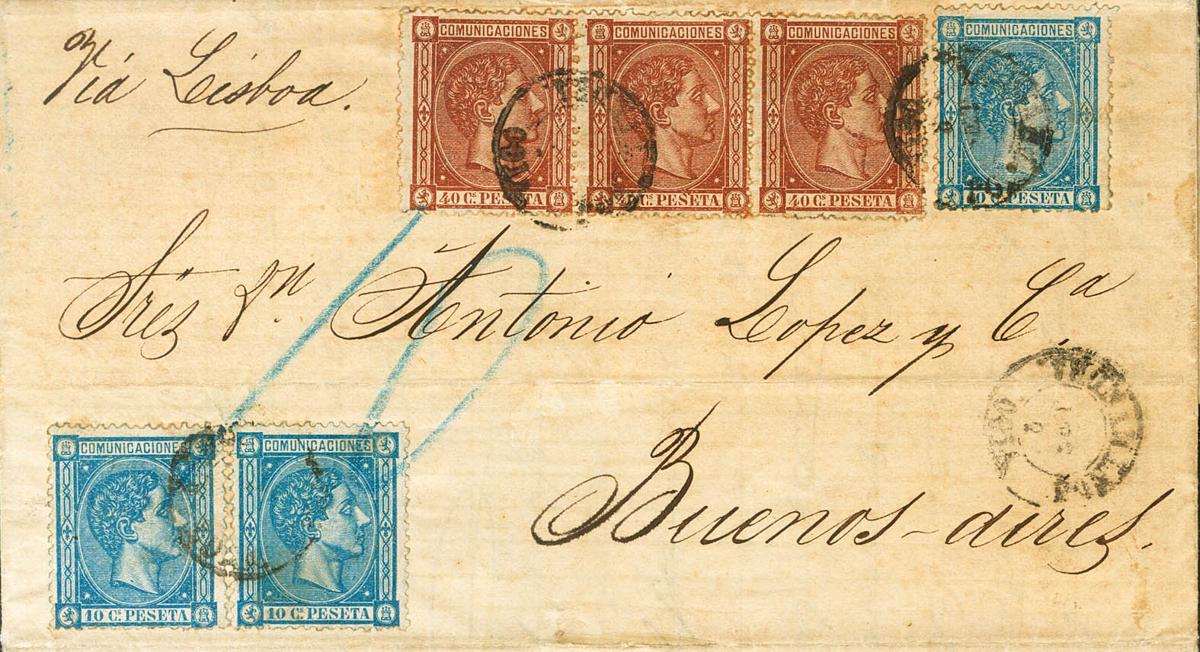 Viá Lisboa.
COMUNICACIONES COMUNICACIONES COMUNICACIONES COMUNICACIONES
40 Cs. PESETA 40 Cs. PESETA 40 Cs. PESETA 10 Cs. PESETA
Srēs Dn Antonio Lopez y Ca.
Buenos-aires.
COMUNICACIONES COMUNICACIONES
10 Cs. PESETA 10 Cs. PESETA